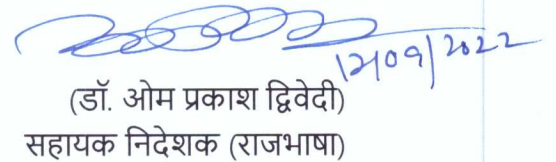 12/09/2022
(डॉ. ओम प्रकाश द्विवेदी)
सहायक निदेशक (राजभाषा)